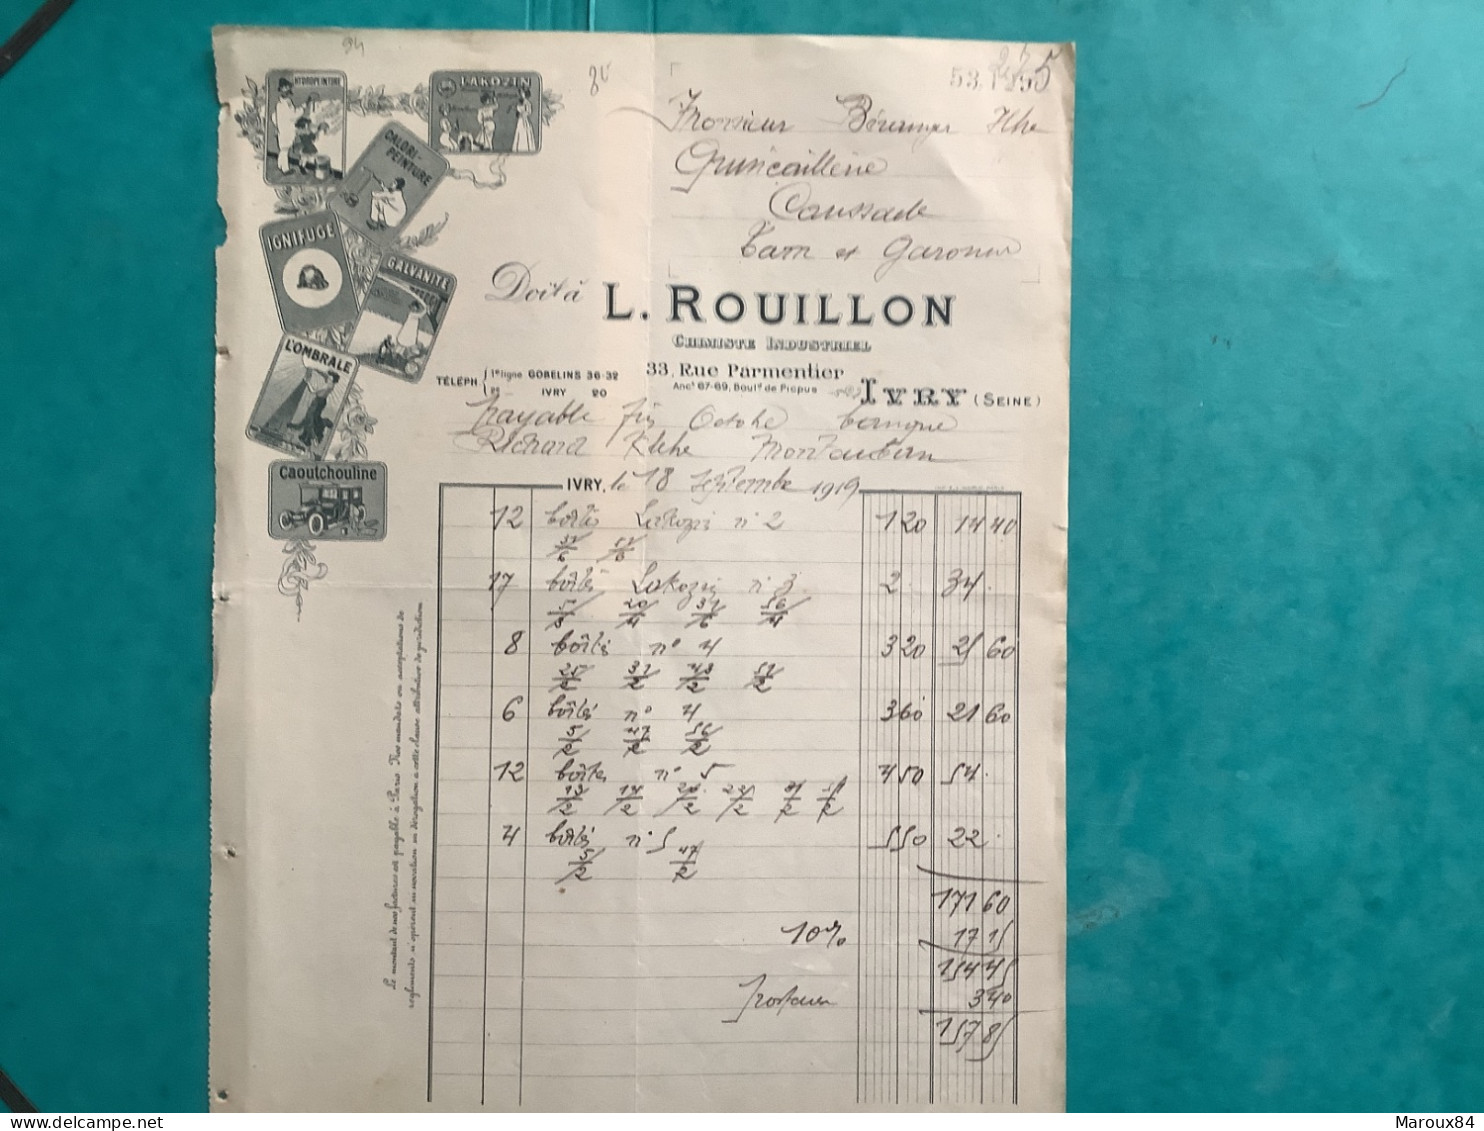 94
HYDROPEINTURE
LAKOZIN
CALORI-
PEINTURE
IGNIFUGE
GALVANITE
L'OMBRALE
Caoutchouline
Monsieur Béranger
Quincaillerie
Caussade
Tarn et Garonne
Doit à
L. ROUILLON
CHIMISTE INDUSTRIEL
33, Rue Parmentier
Anct 67-69, Bould de Picpus
IVRY (SEINE)
TÉLÉPH. 1re ligne GOBELINS 36-32
2e — IVRY 20
Payable fin Octobre banque
Richard Montauban
IVRY, le 18 septembre 1919
12 boîtes Lakozin n° 2 1 20 14 40
17 boîtes Lakozin n° 3 2 . 34 .
8 boîtes n° 4 3 20 25 60
6 boîtes n° 4 3 60 21 60
12 boîtes n° 5 4 50 54 .
4 boîtes n° 5 5 50 22 .
171 60
10% 17 15
154 45
3 40
157 85
Le montant de nos factures est payable à Paris Nos mandats ou acceptations de
règlements n'opèrent ni novation ni dérogation à cette clause attributive de juridiction
Maroux84